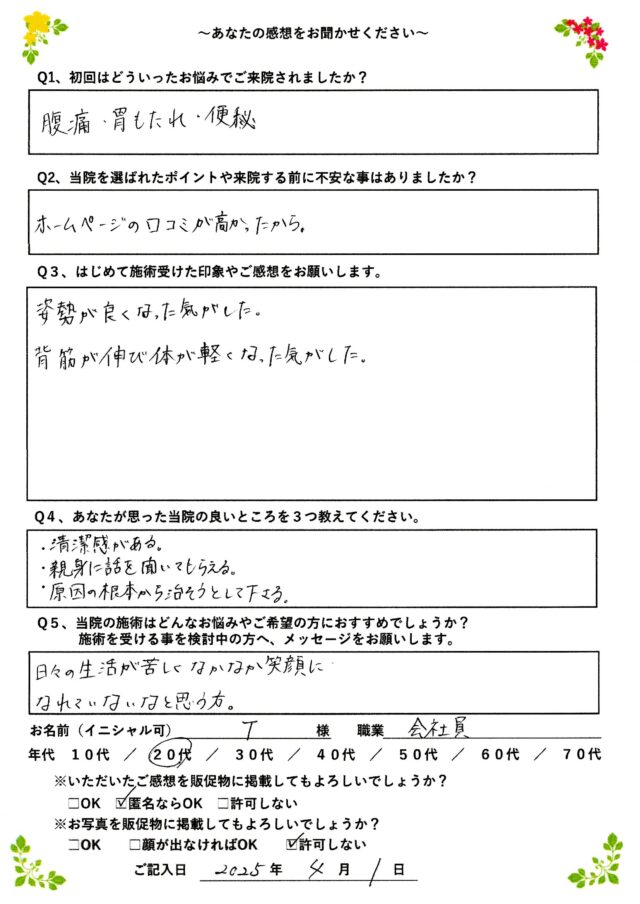 ～あなたの感想をお聞かせください～
Q1、初回はどういったお悩みでご来院されましたか？
腹痛・胃もたれ・便秘
Q2、当院を選ばれたポイントや来院する前に不安な事はありましたか？
ホームページの口コミが高かったから。
Q３、はじめて施術受けた印象やご感想をお願いします。
姿勢が良くなった気がした。
背筋が伸び体が軽くなった気がした。
Q４、あなたが思った当院の良いところを３つ教えてください。
・清潔感がある。
・親身に話を聞いてもらえる。
・原因の根本から治そうとして下さる。
Q５、当院の施術はどんなお悩みやご希望の方におすすめでしょうか？
施術を受ける事を検討中の方へ、メッセージをお願いします。
日々の生活が苦しくなかなか笑顔に
なれていないなと思う方。
お名前（イニシャル可） T 様 職業 会社員
年代 １０代 ／ ２０代 ／ ３０代 ／ ４０代 ／ ５０代 ／ ６０代 ／ ７０代
※いただいたご感想を販促物に掲載してもよろしいでしょうか？
□OK ☑匿名ならOK □許可しない
※お写真を販促物に掲載してもよろしいでしょうか？
□OK □顔が出なければOK ☑許可しない
ご記入日 2025年 4月 1日